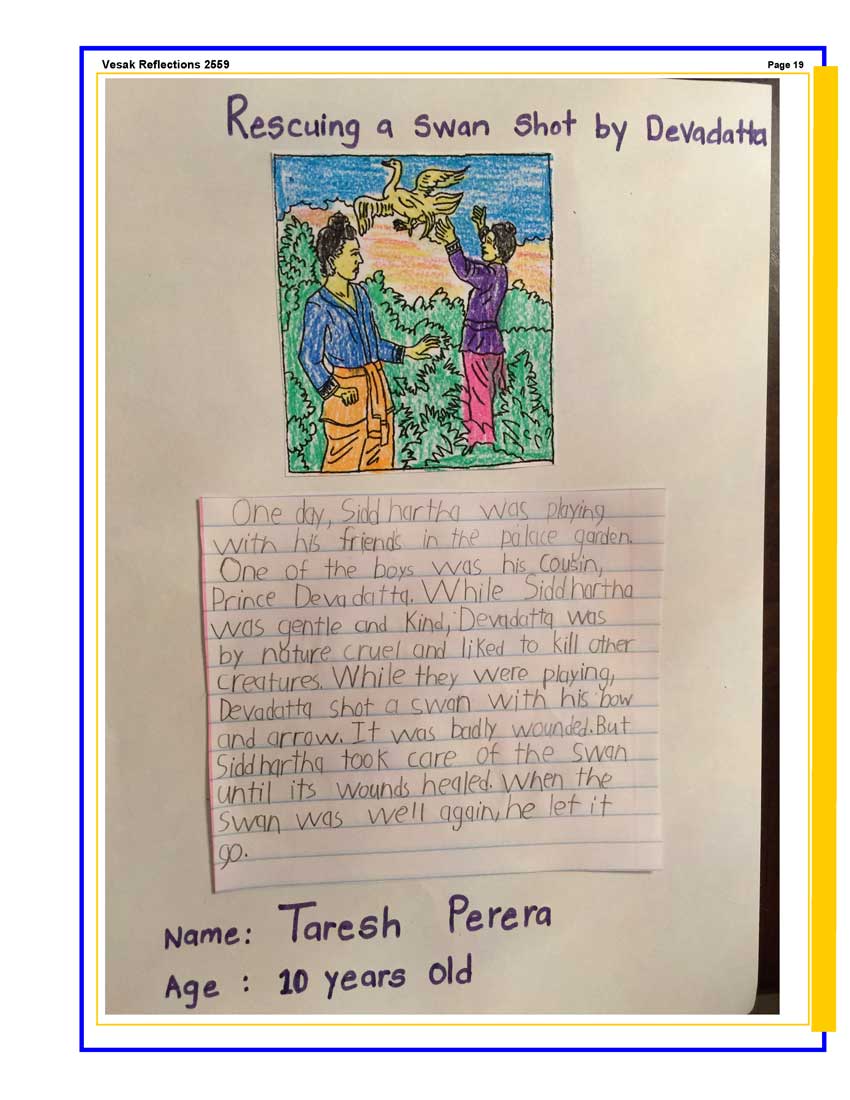 Vesak Reflections 2559
Page 19
Rescuing a swan shot by Devadatta
One day, Siddhartha was playing
with his friends in the palace garden.
One of the boys was his cousin,
Prince Devadatta. While Siddhartha
was gentle and kind, Devadatta was
by nature cruel and liked to kill other
creatures. While they were playing,
Devadatta shot a swan with his bow
and arrow. It was badly wounded. But
Siddhartha took care of the swan
until its wounds healed. When the
swan was well again, he let it
go.
Name: Taresh Perera
Age : 10 years old